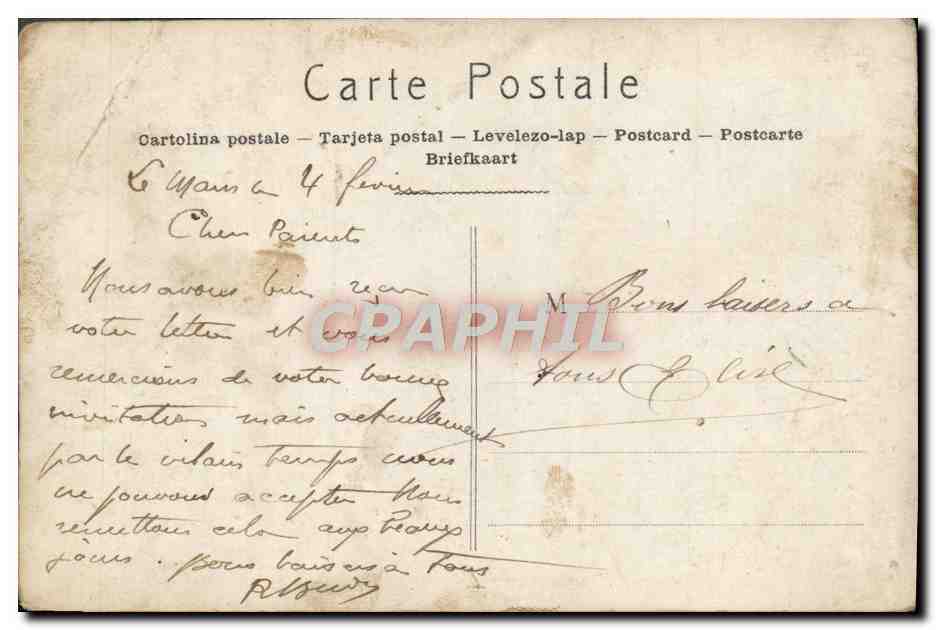 Carte Postale
Cartolina postale — Tarjeta postal — Levelezo-lap — Postcard — Postcarte
Briefkaart
Le Mans le 4 février
Chers Parents
Nous avons bien reçu
votre lettre et vous
remercions de votre bonne
invitation mais actuellement
par le vilain temps nous
ne pouvons accepter Nous
remettons cela aux beaux
jours. Bons baisers à Tous
M Bons baisers a
tous Elise
CPAPHIL